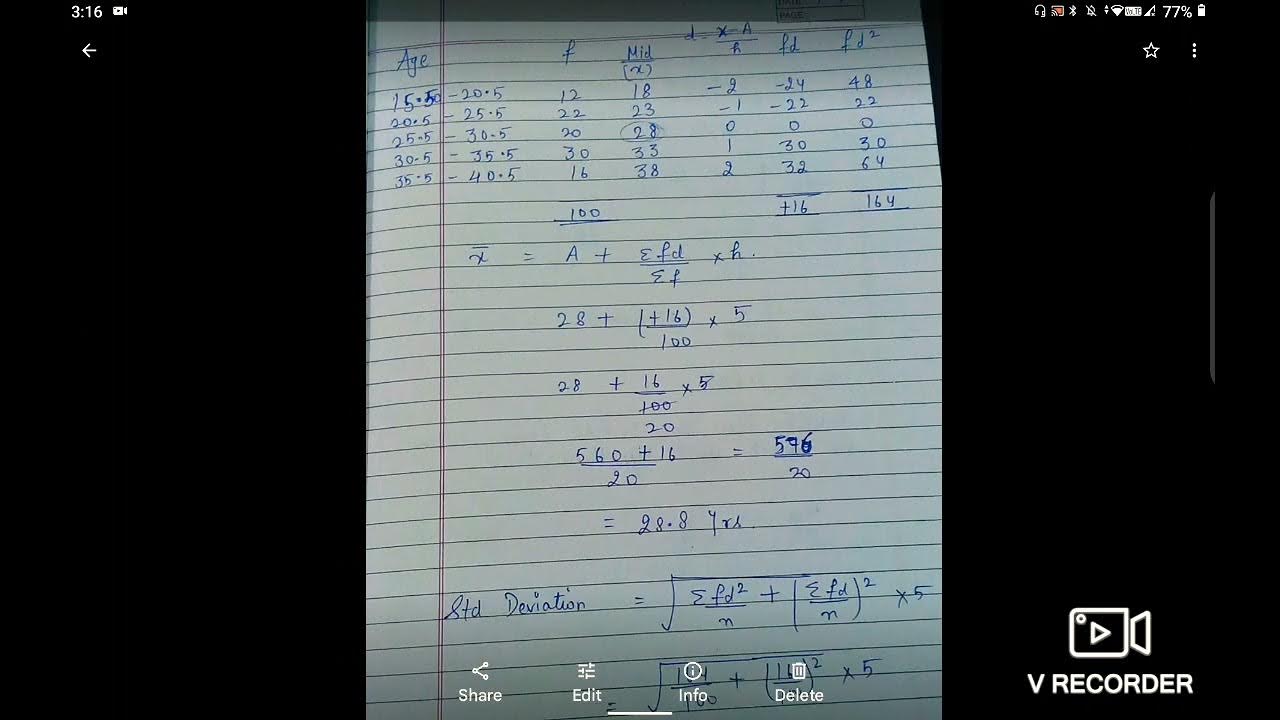 3:16
77%
DATE
PAGE
Age f Mid (x) d = x-A / h fd fd²
15.50 - 20.5 12 18 -2 -24 48
20.5 - 25.5 22 23 -1 -22 22
25.5 - 30.5 20 28 0 0 0
30.5 - 35.5 30 33 1 30 30
35.5 - 40.5 16 38 2 32 64
100 +16 164
x̄ = A + Σfd / Σf × h.
28 + (+16) / 100 × 5
28 + 16 / 100 × 5
20
560 + 16 / 20 = 576 / 20
= 28.8 Yrs.
Std Deviation = √ Σfd² / n + (Σfd / n)² × 5
= √ 164 / 100 + (16)² × 5
Share Edit Info Delete
V RECORDER